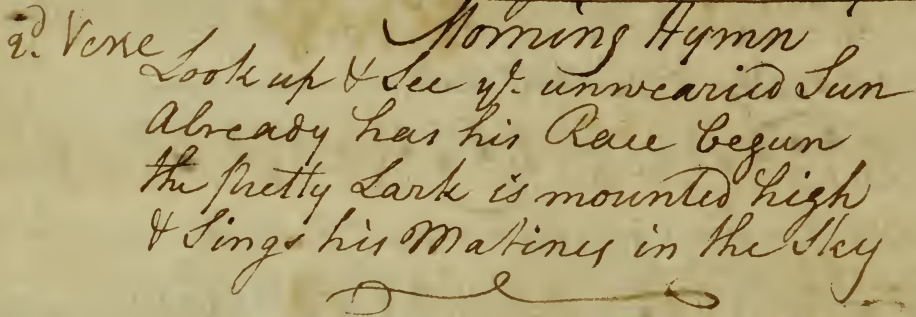 2d. Verse
Morning Hymn
Look up & See ye. unwearied Sun
Already has his Race begun
the pretty Lark is mounted high
& Sings his Matines in the Sky